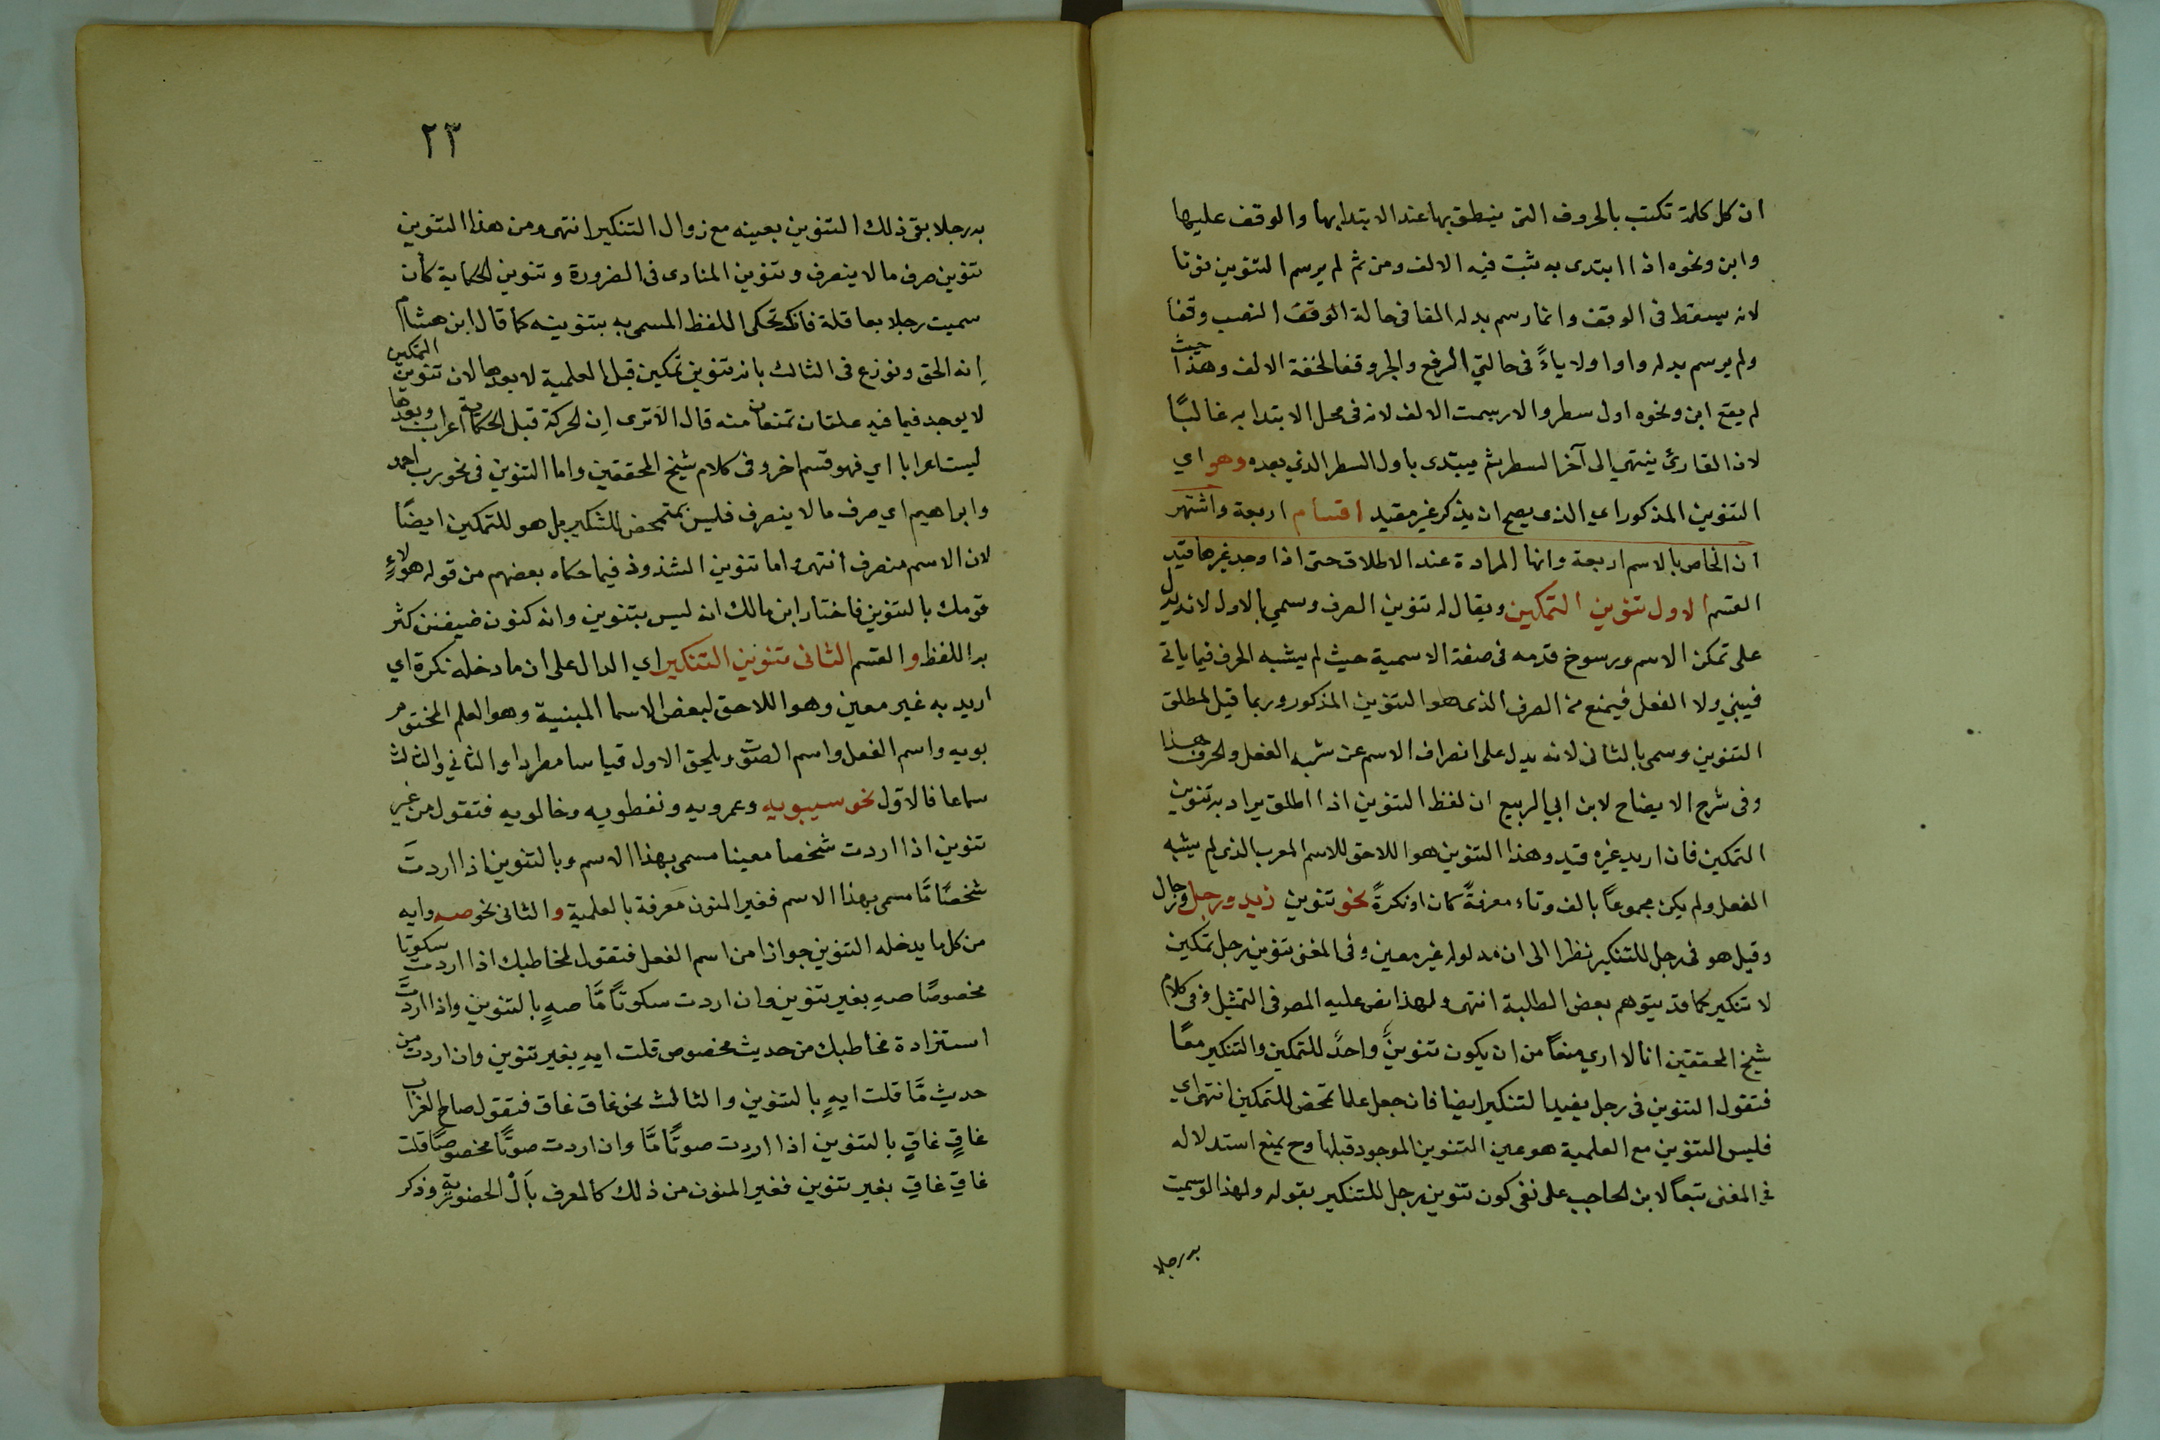 ان كل كلمة تكتب بالحروف التى ينطق بها عند الابتدا بها والوقف عليها
وابن ونحوه اذا ابتدى به ثبت فيه الالف ومن ثم لم يرسم التنوين نونا
لانه يسقط فى الوقف وانما رسم بدله الفا فى حالة الوقف النصب وقفا
ولم يرسم بدله واوا ولا ياءً فى حالتي الرفع والجر وقفا لخفة الالف وهذا حيث
لم يقع ابن ونحوه اول سطر والا رسمت الالف لانه فى محل الابتدا به غالبًا
لان القارئ ينتهي الى آخر السطر ثم يبتدى باول السطر الذي بعده وهو اي
التنوين المذكور اي الذى يصح ان يذكر غير مقيد اقسام اربعة واشتهر
ان الخاص بالاسم اربعة وانها المرادة عند الاطلاق حتى اذا وجد غيرها قيد
القسم الاول تنوين التمكين ويقال له تنوين الصرف وسمي بالاول لانه يدل
على تمكن الاسم ورسوخ قدمه فى صفة الاسمية حيث لم يشبه الحرف فيما ياتى
فيبني ولا الفعل فيمنع من الصرف الذى هو التنوين المذكور وربما قيل لمطلق
التنوين وسمى بالثانى لانه يدل على انصراف الاسم عن شبه الفعل والحرف هذا
وفى شرح الايضاح لابن ابي الربيع ان لفظ التنوين اذا اطلق يراد به تنوين
التمكين فان اريد غيره قيد وهذا التنوين هو اللاحق للاسم المعرب الذى لم يشبه
الفعل ولم يكن مجموعاً بالف وتاء معرفةً كان او نكرةً نحو تنوين زيد ورجل ورجال
وقيل هو فى رجل للتنكير نظرا الى ان مدلوله غير معين وفى المغنى تنوين رجل تمكين
لا تنكير كما قد يتوهم بعض الطلبة انتهى ولهذا نص عليه المص فى التمثيل وفى كلام
شيخ المحققين انا لا ارى منعاً من ان يكون تنوينٌ واحدٌ للتمكين والتنكير معًا
فتقول التنوين فى رجل يفيد التنكير ايضا فان جعل علما تمحض للتمكين انتهى اي
فليس التنوين مع العلمية هو عين التنوين الموجود قبلها وح يمنع استدلاله
في المغنى تبعاً لابن الحاجب على نفى كون تنوين رجل للتنكير بقوله ولهذا لو سميت
به رجلا
٢٣
به رجلا بقى ذلك التنوين بعينه مع زوال التنكير انتهى ومن هذا التنوين
تنوين صرف ما لا ينصرف وتنوين المنادى فى الضرورة وتنوين الحكاية كأن
سميت رجلا بعاقلة فانك تحكى اللفظ المسمى به بتنوينه كما قال ابن هشام
إنه الحق ونوزع فى الثالث بانه تنوين تمكين قبل العلمية لا بعدها لان تنوين التمكين
لا يوجد فيما فيه علتان تمنعان منه قال الا ترى إن الحركة قبل الحكاية اعراب وبعدها
ليست اعرابا اي فهو قسم اخر وفى كلام شيخ المحققين واما التنوين فى نحو رب احمد
وابراهيم اي صرف ما لا ينصرف فليس بمتمحض للتنكير بل هو للتمكين ايضًا
لان الاسم منصرف انتهى واما تنوين الشذوذ فيما حكاه بعضهم من قوله هؤلاءٍ
قومك بالتنوين فاختار ابن مالك انه ليس بتنوين وانه كنون ضيفنن كثر
به اللفظ والقسم الثانى تنوين التنكير اي الدال على ان ما دخله نكرة اي
اريد به غير معين وهو اللاحق لبعض الاسما المبنية وهو العلم المختوم
بويه واسم الفعل واسم الصوت ويلحق الاول قياسا مطردا والثاني والثالث
سماعا فالاول نحو سيبويه وعمرويه ونفطويه وخالويه فتقول من غير
تنوين اذا اردت شخصا معينا مسمى بهذا الاسم وبالتنوين اذا اردتَ
شخصًا مَّا مسمى بهذا الاسم فغير المنون مَعرفة بالعلمية والثانى نحو صه وايه
من كل ما يدخله التنوين جوازا من اسم الفعل فتقول لمخاطبك اذا اردت سكوتا
مخصوصًا صهِ بغير تنوين وان اردت سكوتاً مَّا صهٍ بالتنوين واذا اردتَ
استزادة مخاطبك من حديث مخصوص قلت ايهِ بغير تنوين وان اردت من
حديث مَّا قلت ايهٍ بالتنوين والثالث نحو غاق غاق فتقول صاح الغراب
غاقٍ غاقٍ بالتنوين اذا اردت صوتًا مَّا وان اردت صوتًا مخصوصًا قلت
غاقِ غاقِ بغير تنوين فغير المنون من ذلك كالمعرف بأَلْ الحضورية وذكر